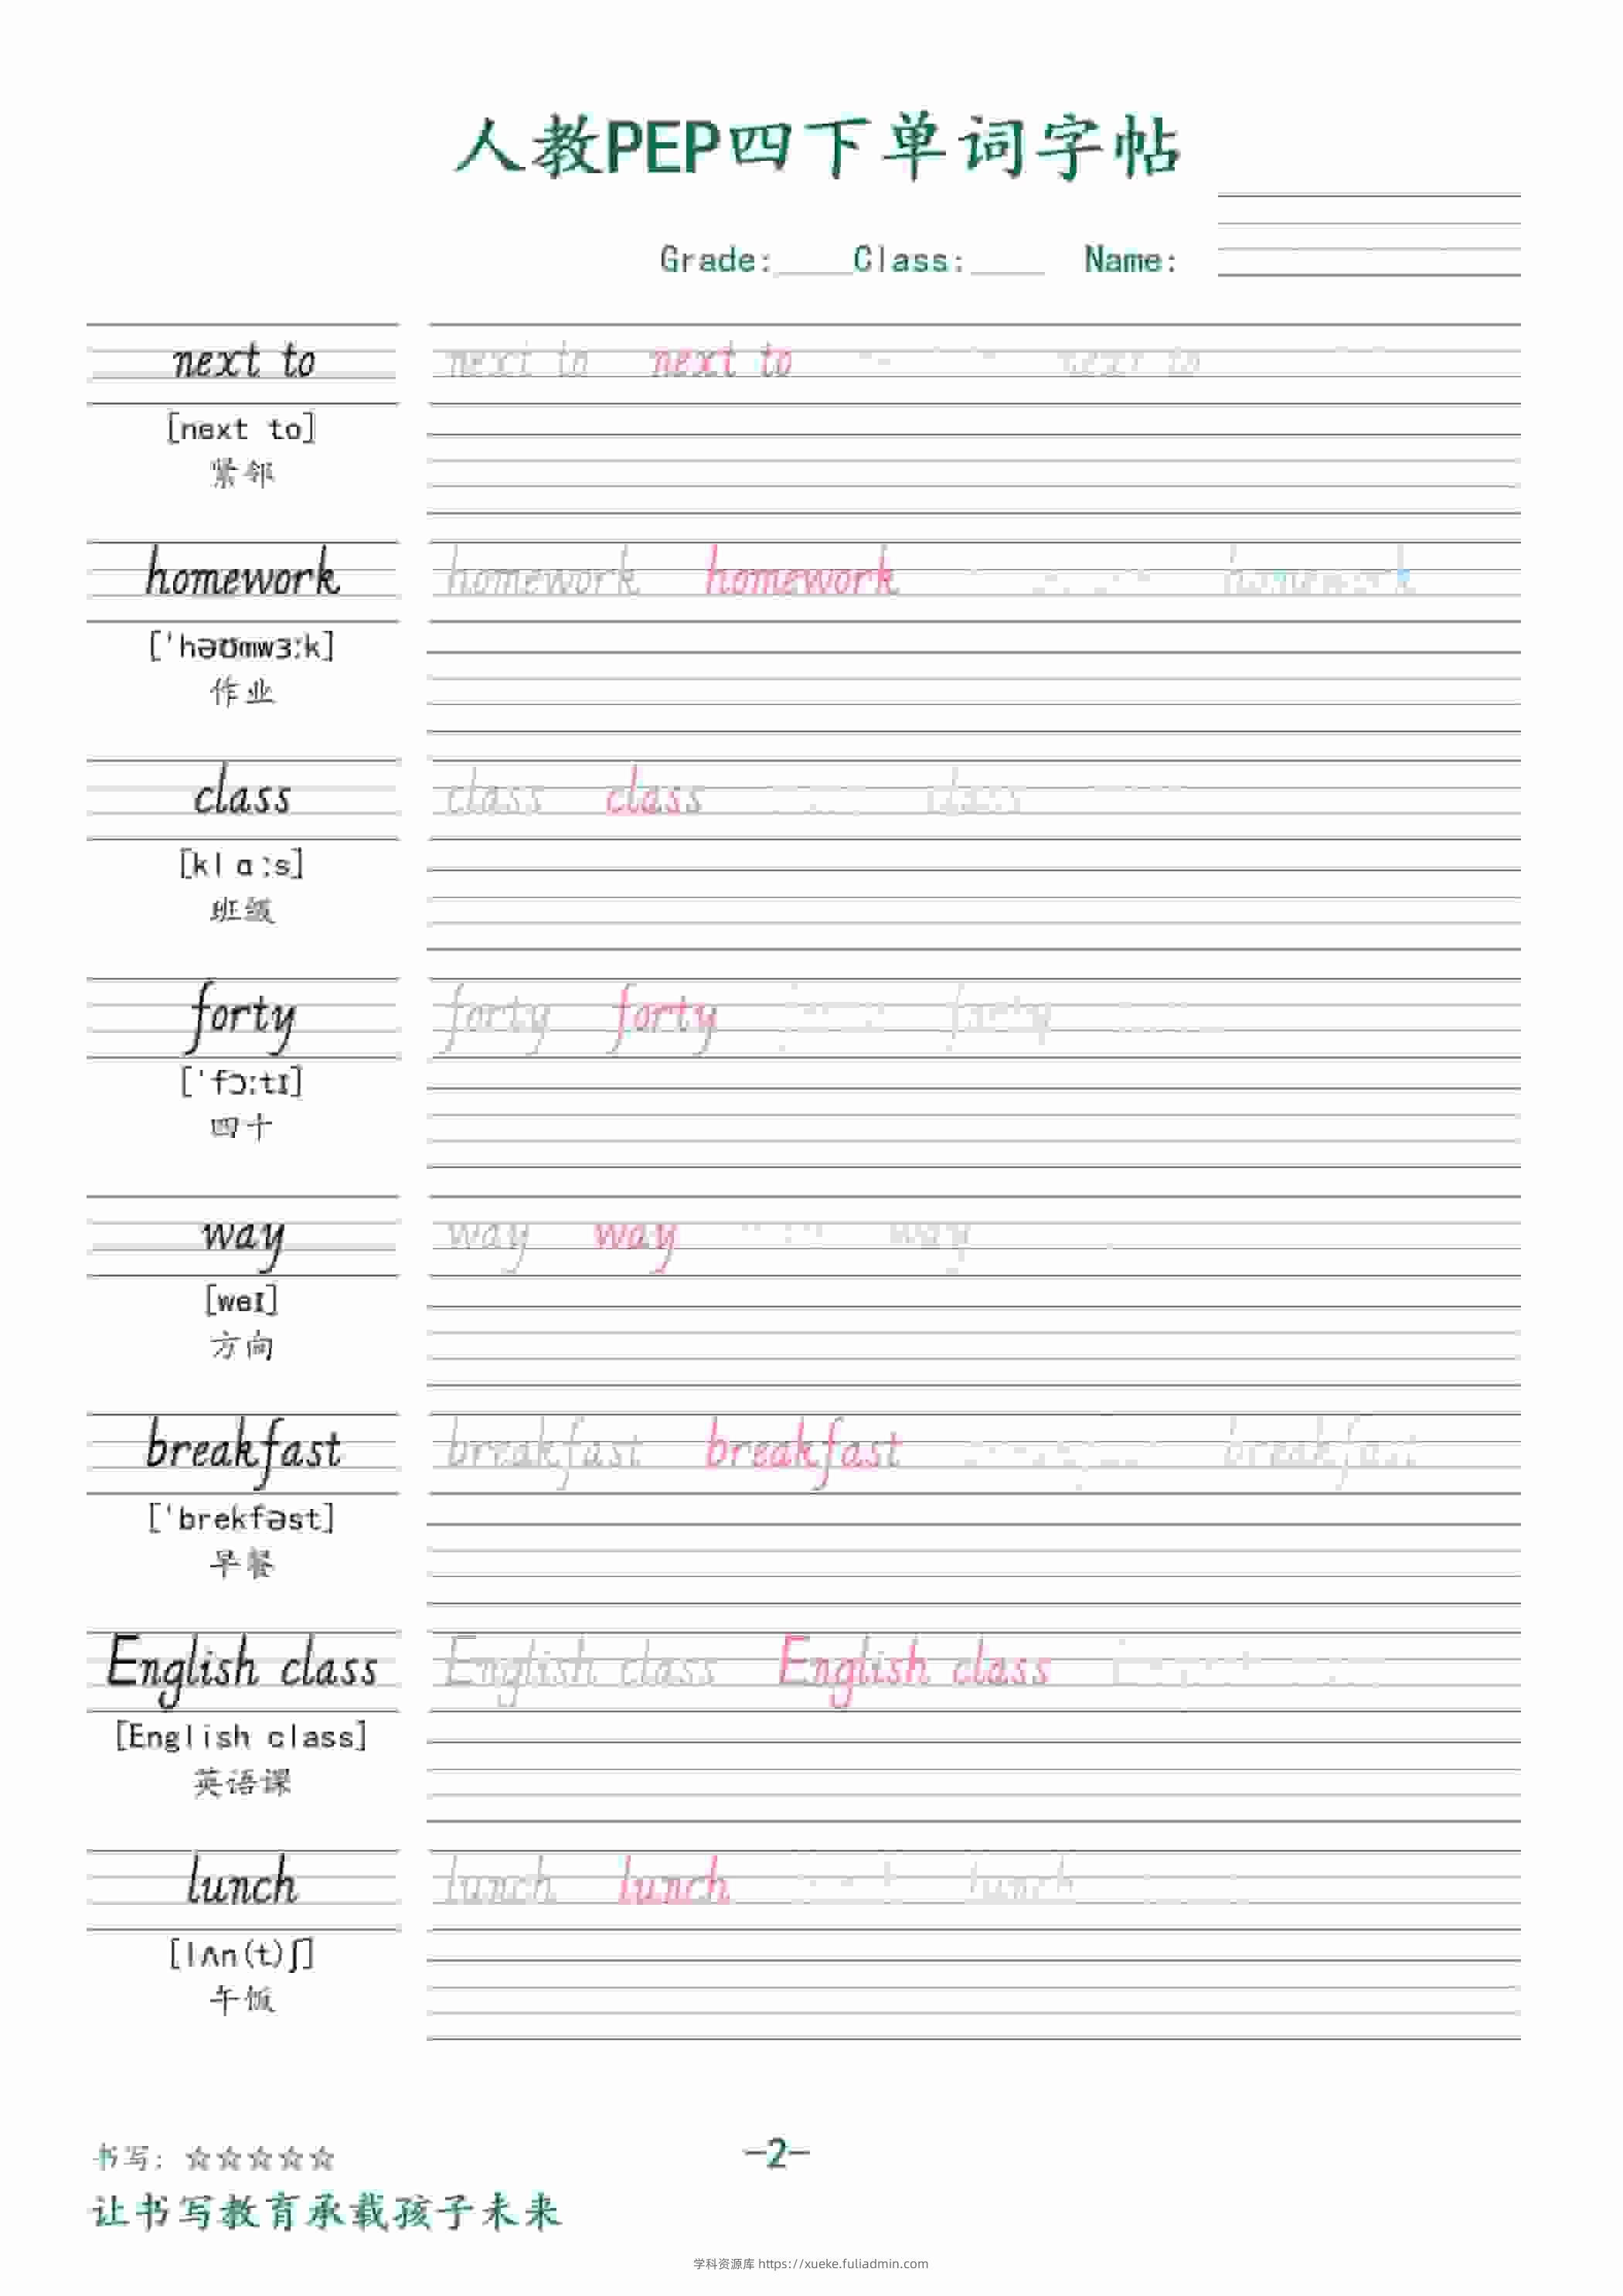 人教PEP四下单词字帖
Grade:____Class:____ Name:
next to next to next to next to
[next to]
紧邻
homework homework homework homework
['həʊmwɜːk]
作业
class class class class
[klɑːs]
班级
forty forty forty forty
['fɔːtɪ]
四十
way way way way
[weɪ]
方向
breakfast breakfast breakfast breakfast
['brekfəst]
早餐
English class English class English class
[English class]
英语课
lunch lunch lunch lunch
[lʌn(t)ʃ]
午饭
书写：☆☆☆☆☆
-2-
让书写教育承载孩子未来
学科资源库 https://xueke.fuliadmin.com